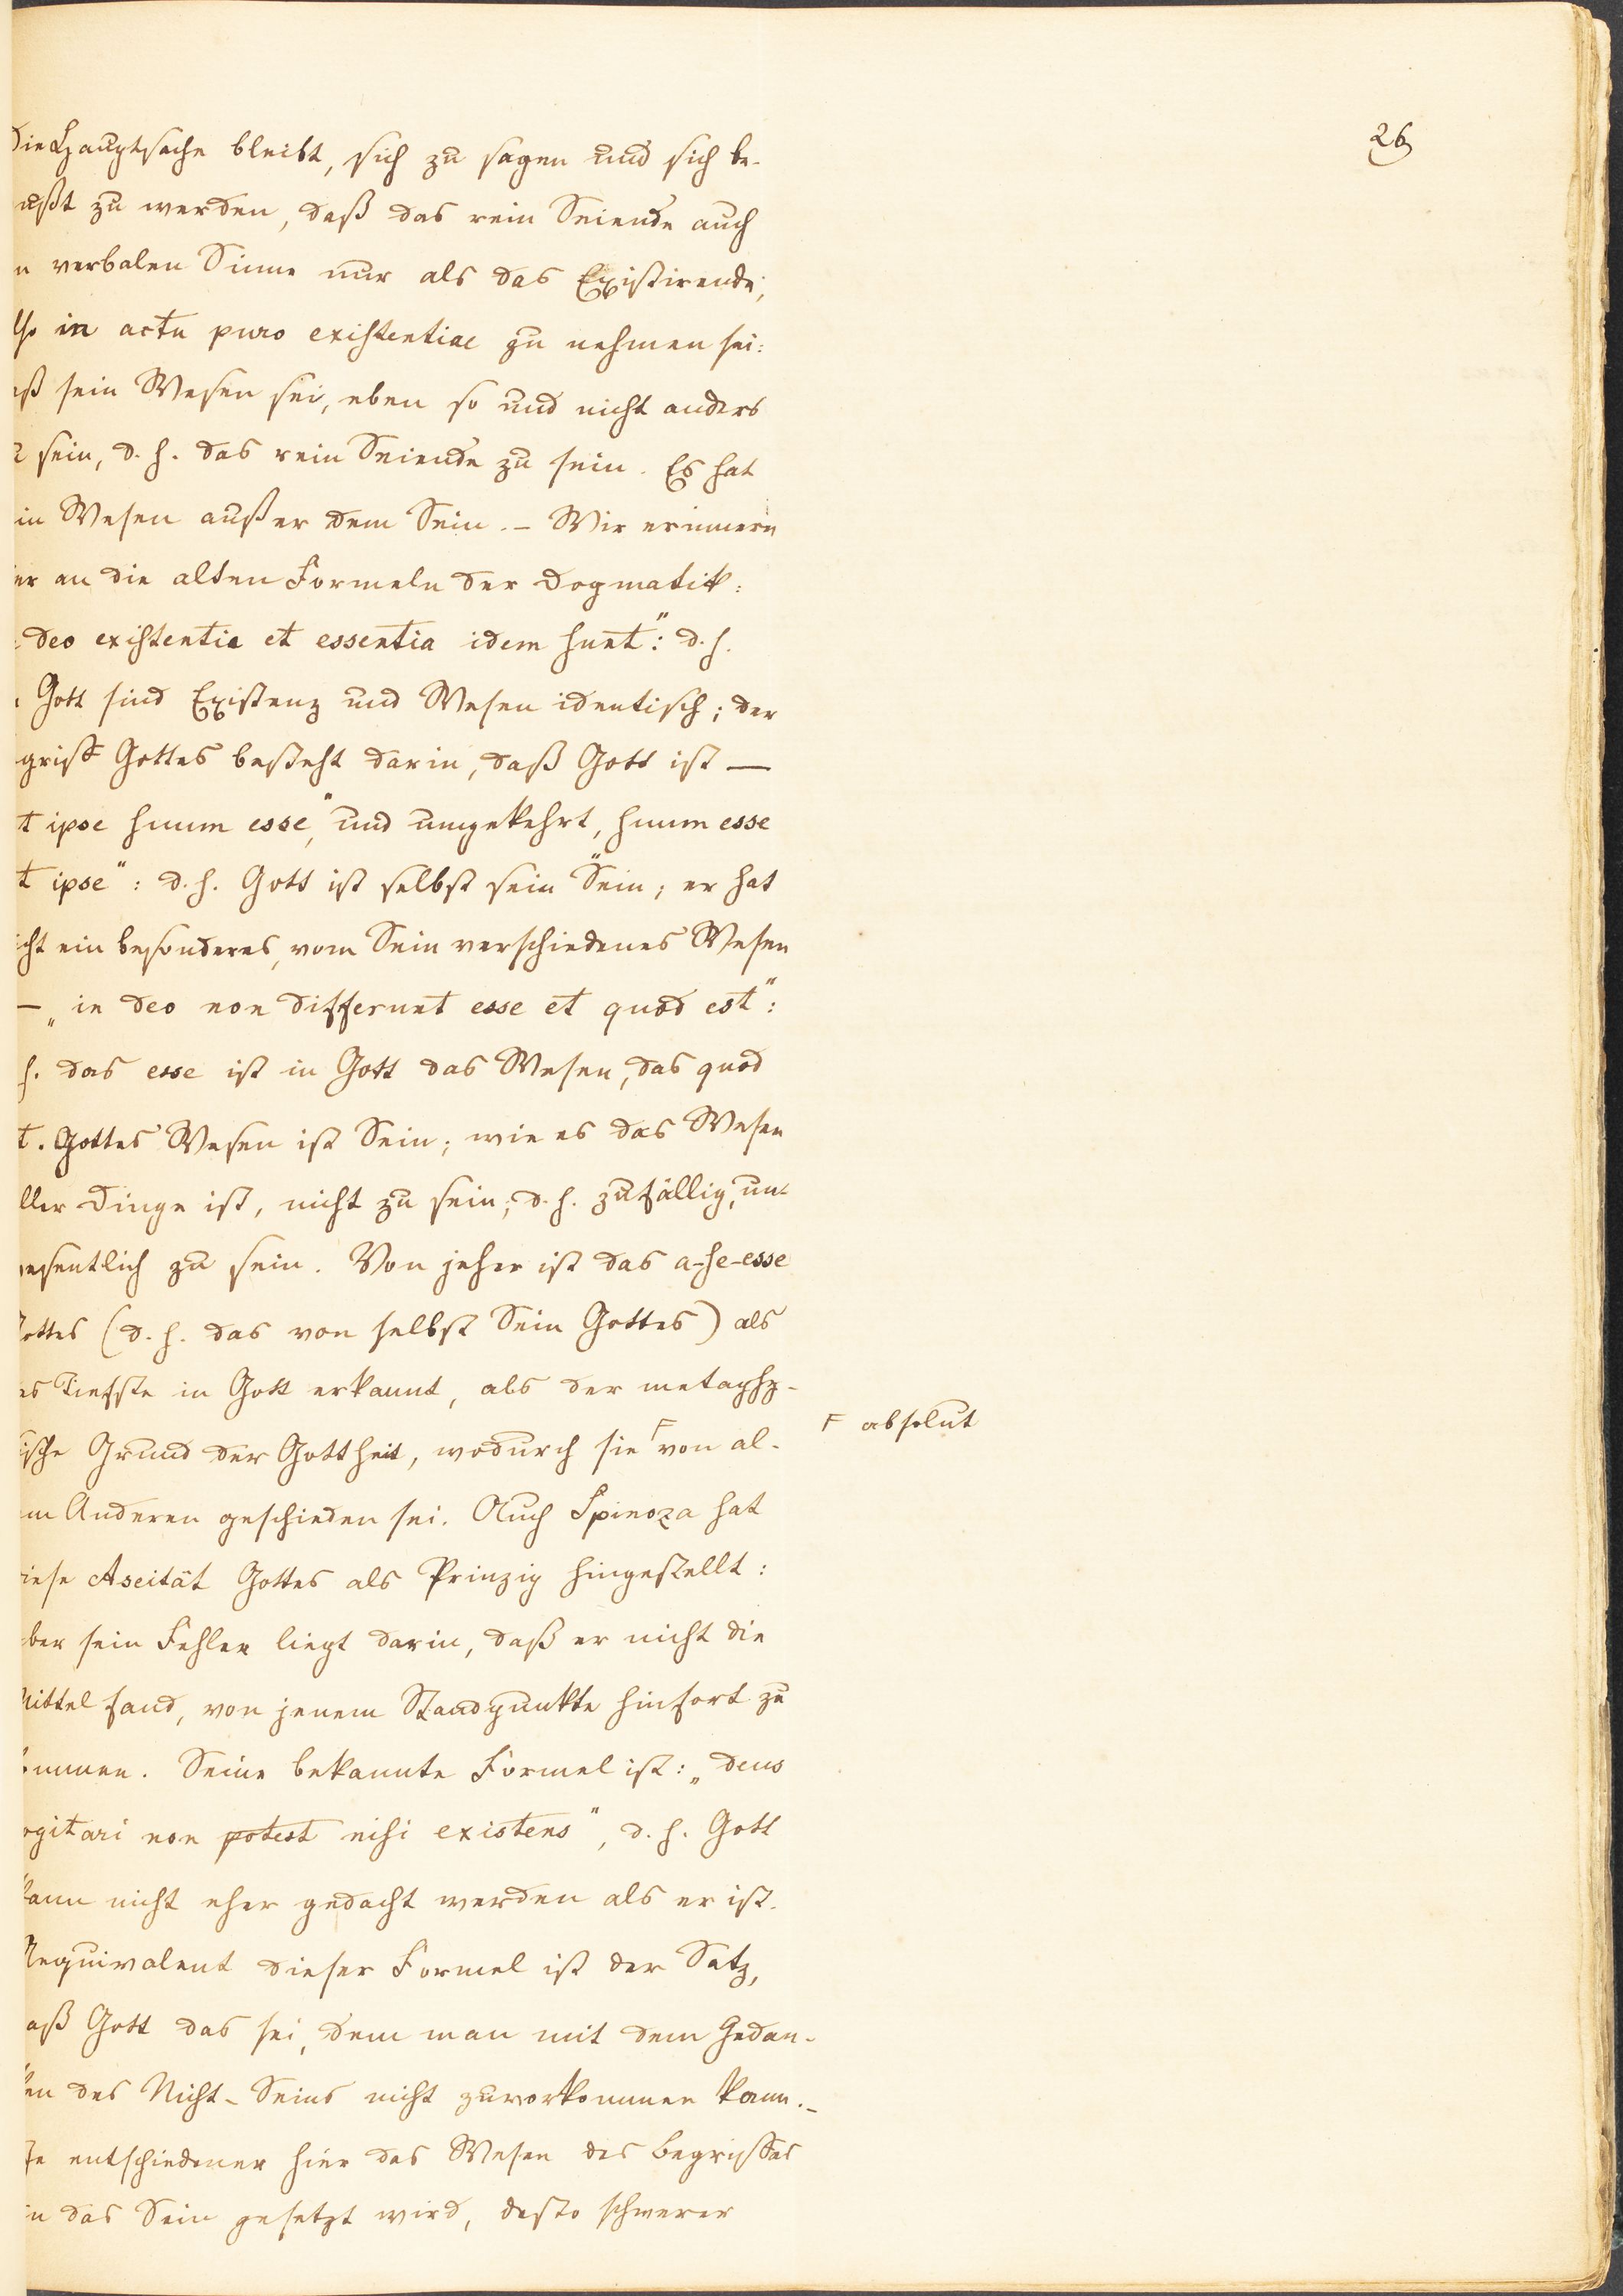 26
Die Hauptsache bleibt, sich zu sagen und sich be-
ußt zu werden, daß das rein Seiende auch
n verbalen Sinne nur als das Existirende,
lso in actu puro existentiae zu nehmen sei:
aß sein Wesen sei, eben so und nicht anders
u sein, d. h. das rein Seiende zu sein. Es hat
in Wesen außer dem Sein. – Wir erinnern
ier an die alten Formeln der Dogmatik:
deo existentia et essentia idem sunt": d. h.
Gott sind Existenz und Wesen identisch; der
griff Gottes besteht darin, daß Gott ist —
t ipse suum esse" und umgekehrt, suum esse
t ipse": d. h. Gott ist selbst sein Sein; er hat
icht ein besonderes, vom Sein verschiedenes Wesen
– „in deo non differunt esse et quod est":
h. das esse ist in Gott das Wesen, das quod
t. Gottes Wesen ist Sein; wie es das Wesen
ller Dinge ist, nicht zu sein, d. h. zufällig, un-
wesentlich zu sein. Von jeher ist das a-se-esse
Gottes (d. h. das von selbst Sein Gottes) als
as Tiefste in Gott erkannt, als der metaphy-
ische Grund der Gottheit, wodurch sie ⌜ von al-
⌜ absolut
em Anderen geschieden sei. Auch Spinoza hat
iese Aseität Gottes als Prinzip hingestellt:
ber sein Fehler liegt darin, daß er nicht die
Mittel fand, von jenem Standpunkte hinfort zu
ommen. Seine bekannte Formel ist: „deus
ogitari non potest nisi existens", d. h. Gott
kann nicht eher gedacht werden als er ist.
Aequivalent dieser Formel ist der Satz,
aß Gott das sei, dem man mit dem Gedan-
ken des Nicht-Seins nicht zuvorkommen kann. –
Je entschiedener hier das Wesen des Begriffes
in das Sein gesetzt wird, desto schwerer